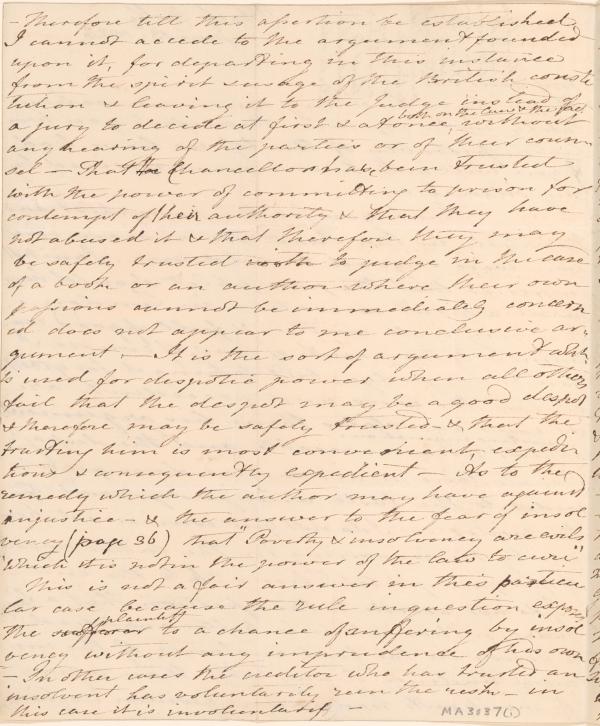 - Therefore till this assertion be established
I cannot accede to the argument founded
upon it, for departing in this instance
from the spirit & usage of the British consti
tution & leaving it to the Judge instead of
both on the Law & the fact
a jury to decide at first & at once, without
any hearing of the parties or of their coun
sel - That the Chancellors have been trusted
with the power of committing to prison for
contempt of their authority & that they have
not abused it & that therefore they may
be safely trusted with to judge in the case
of a book or an author where their own
passions cannot be immediately concern
ed does not appear to me conclusive ar-
gument. - It is the sort of argument which
is used for despotic power when all others
fail that the despot may be a good despot
& therefore may be safely trusted - & that the
trusting him is most convenient, expedi
tious & consequently expedient - As to the
remedy which the author may have against
injustice - & the answer to the fear of insol
vency (page 36) that "Poverty & insolvency are evils
which it is not in the power of the law to cure"
This is not a fair answer in this particu
lar case because the rule in question expose
plaintiff
the sufferer to a chance of suffering by insol
vency without any imprudence of his own
- In other cases the creditor who has trusted an
insolvent has voluntarily run the risk - in
this case it is involuntary -
MA3087(1)